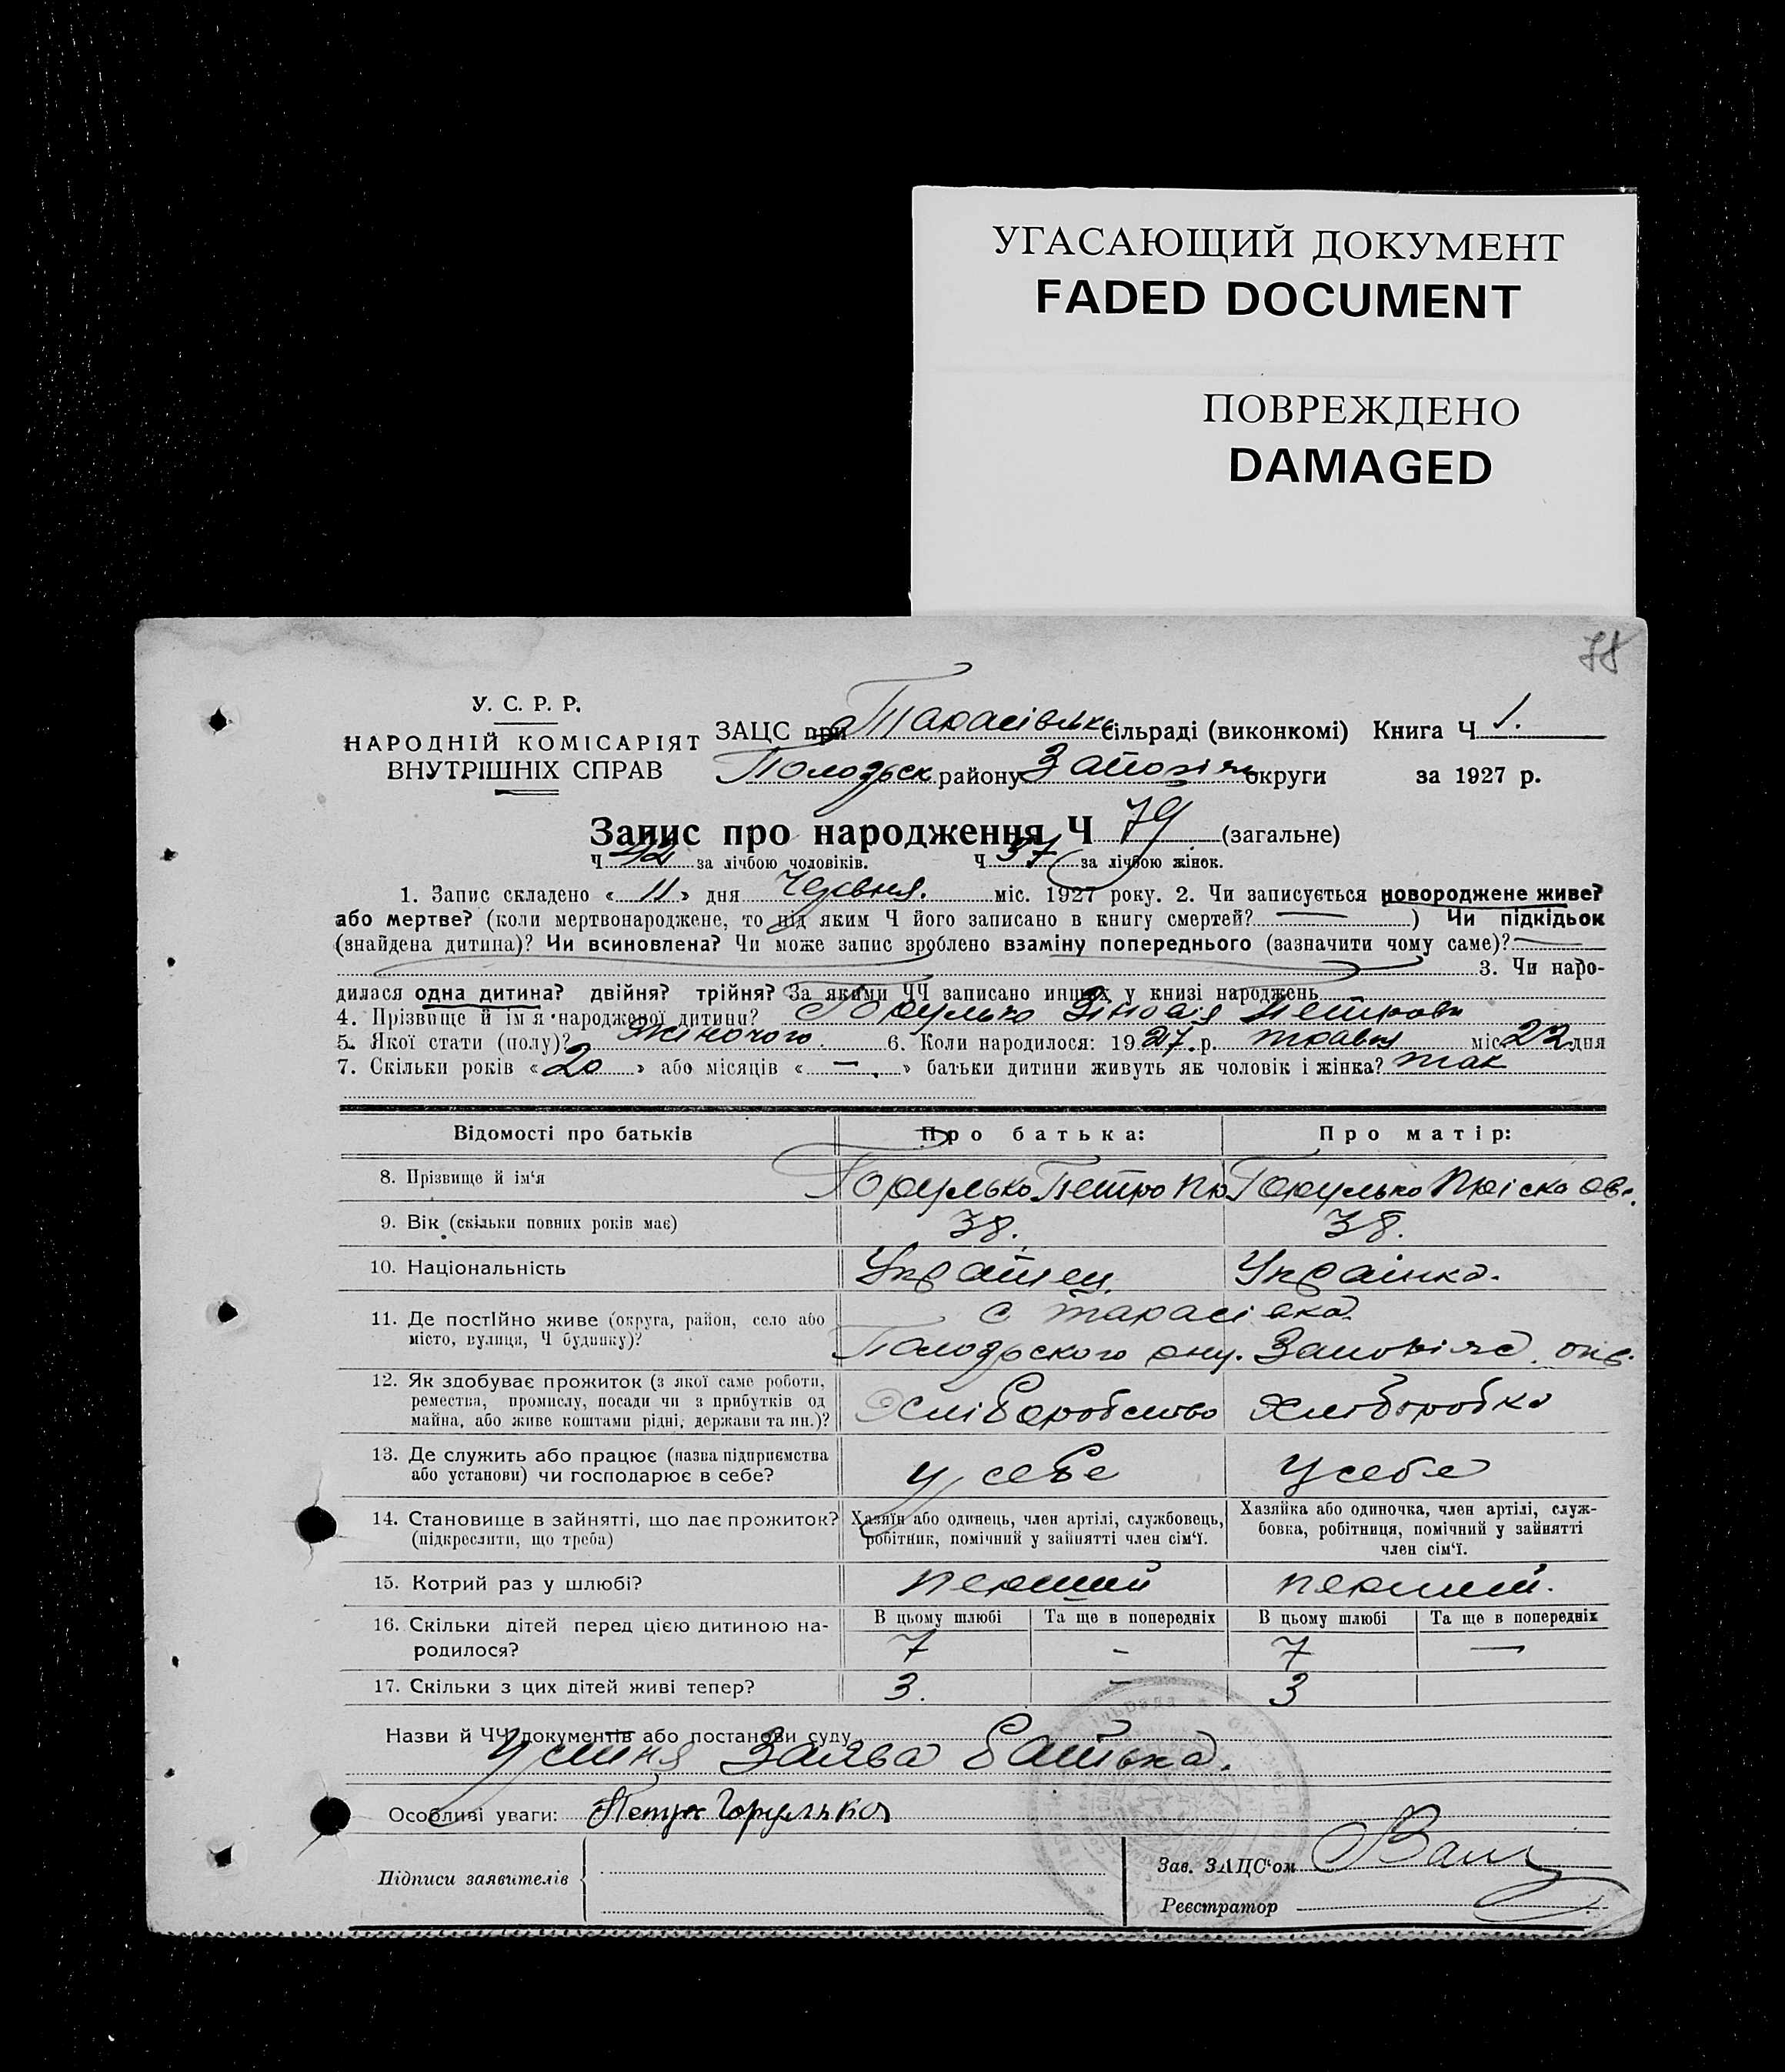 УГАСАЮЩИЙ ДОКУМЕНТ
FADED DOCUMENT
ПОВРЕЖДЕНО
DAMAGED
У. С. Р. Р.
НАРОДНІЙ КОМІСАРІЯТ
ВНУТРІШНІХ СПРАВ
ЗАЦС при Тарасівськ сільраді (виконкомі) Книга Ч 1.
Пологськ району Запоріж округи за 1927 р.
Запис про народження Ч 79 (загальне)
Ч 42 за лічбою чоловіків. Ч 37 за лічбою жінок.
1. Запис складено « 11 » дня Червня. міс. 1927 року. 2. Чи записується новороджене живе?
або мертве? (коли мертвонароджене, то під яким Ч його записано в книгу смертей? — ) Чи підкідьок
(знайдена дитина)? Чи всиновлена? Чи може запис зроблено взаміну попереднього (зазначити чому саме)? —
3. Чи наро-
дилася одна дитина? двійня? трійня? За якими ЧЧ записано инших у книзі народжень
4. Прізвище й ім'я народженої дитини? Горулько Зіновія Петровн
5. Якої стати (полу)? Жіночого. 6. Коли народилося: 1927. р. травня міс. 22 дня
7. Скільки років « 20 » або місяців « — » батьки дитини живуть як чоловік і жінка? так
Відомості про батьків Про батька: Про матір:
8. Прізвище й ім'я Горулько Петро Горулько Пріська
9. Вік (скільки повних років має) 38. 38.
10. Національність Українец. Українка.
11. Де постійно живе (округа, район, село або с Тарасівка
місто, вулиця, Ч будинку)? Пологського Запоріжс. окр.
12. Як здобуває прожиток (з якої саме роботи,
ремества, промислу, посади чи з прибутків од Хліборобство Хліборобка
майна, або живе коштами рідні, держави та ин.)?
13. Де служить або працює (назва підприємства
або установи) чи господарює в себе? у себе у себе
14. Становище в зайнятті, що дає прожиток? Хазяїн або одинець, член артілі, службовець, Хазяйка або одиночка, член артілі, служ-
(підкреслити, що треба) робітник, помічний у зайнятті член сім'ї. бовка, робітниця, помічний у зайнятті
член сім'ї.
15. Котрий раз у шлюбі? перший перший.
16. Скільки дітей перед цією дитиною на- В цьому шлюбі Та ще в попередніх В цьому шлюбі Та ще в попередніх
родилося? 7 - 7 —
17. Скільки з цих дітей живі тепер? 3. - 3
Назви й ЧЧ документів або постанови суду
Устня Заява батька.
Особливі уваги: Петро Горулько
Підписи заявителів
Зав. ЗАЦС'ом
Реєстратор